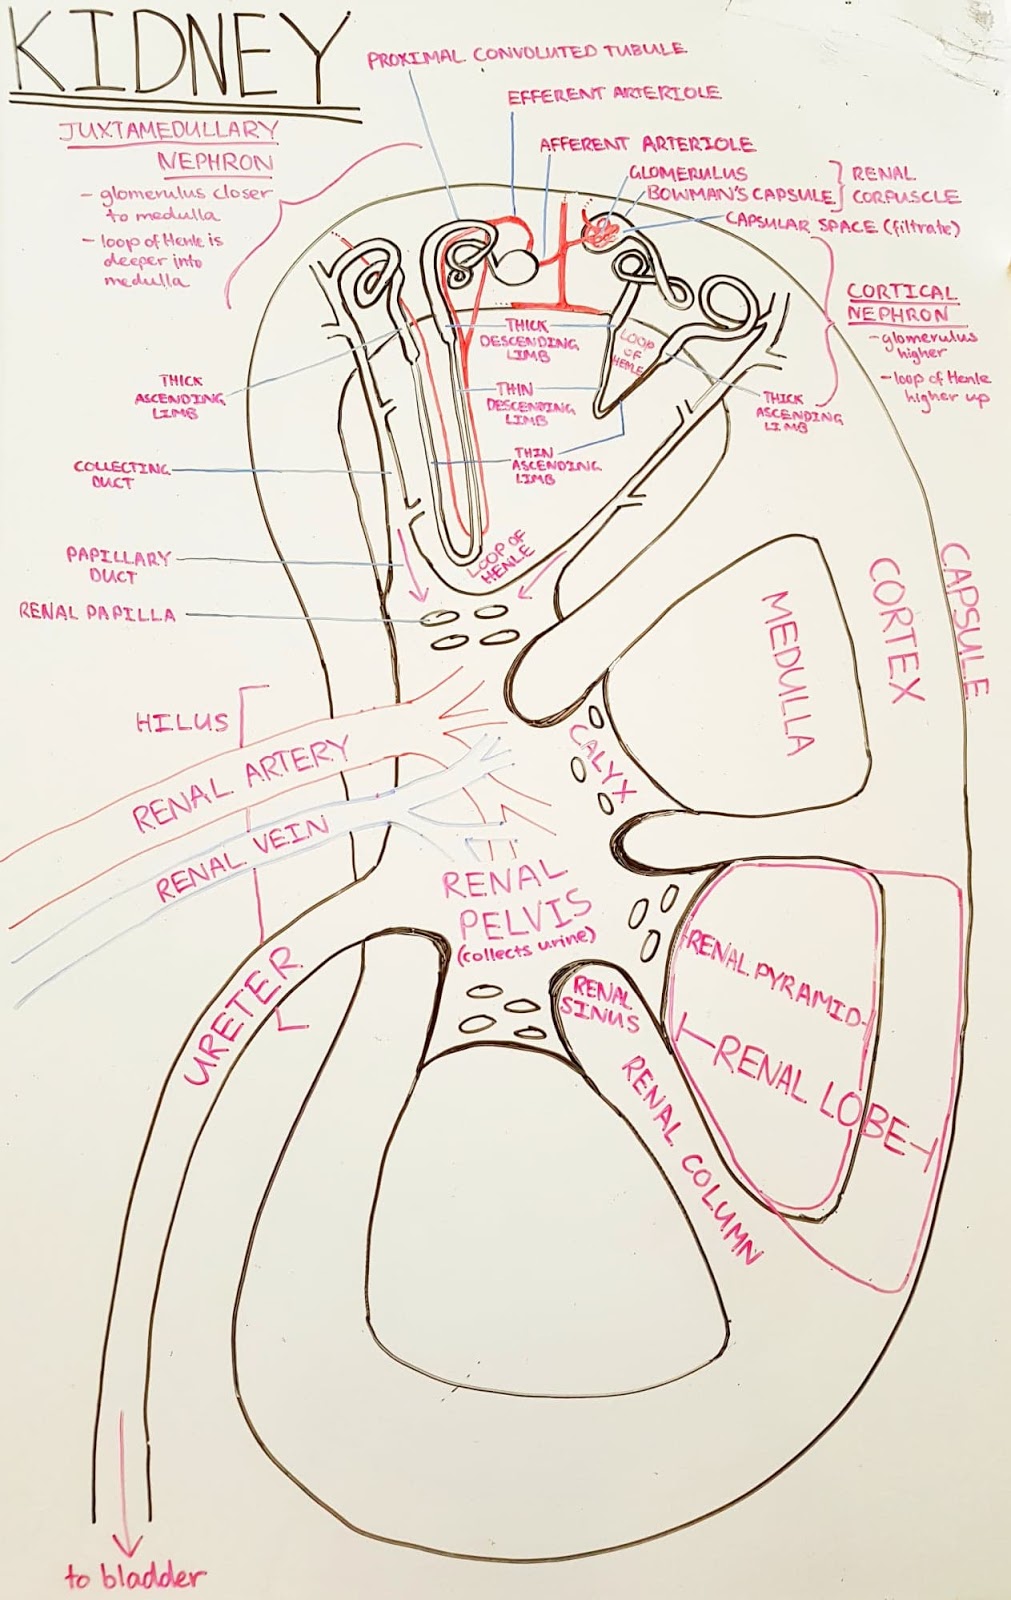 KIDNEY
PROXIMAL CONVOLUTED TUBULE
EFFERENT ARTERIOLE
AFFERENT ARTERIOLE
JUXTAMEDULLARY
NEPHRON
- glomerulus closer
to medulla
- loop of Henle is
deeper into
medulla
GLOMERULUS
BOWMAN'S CAPSULE
RENAL
CORPUSCLE
CAPSULAR SPACE (filtrate)
CORTICAL
NEPHRON
- glomerulus
higher
- loop of Henle
higher up
THICK
DESCENDING
LIMB
LOOP
OF
HENLE
THICK
ASCENDING
LIMB
THIN
DESCENDING
LIMB
THICK
ASCENDING
LIMB
COLLECTING
DUCT
THIN
ASCENDING
LIMB
LOOP OF
HENLE
PAPILLARY
DUCT
RENAL PAPILLA
MEDULLA
CORTEX
CAPSULE
HILUS
RENAL ARTERY
CALYX
RENAL VEIN
RENAL
PELVIS
(collects urine)
RENAL PYRAMID
URETER
RENAL
SINUS
RENAL LOBE
RENAL COLUMN
to bladder